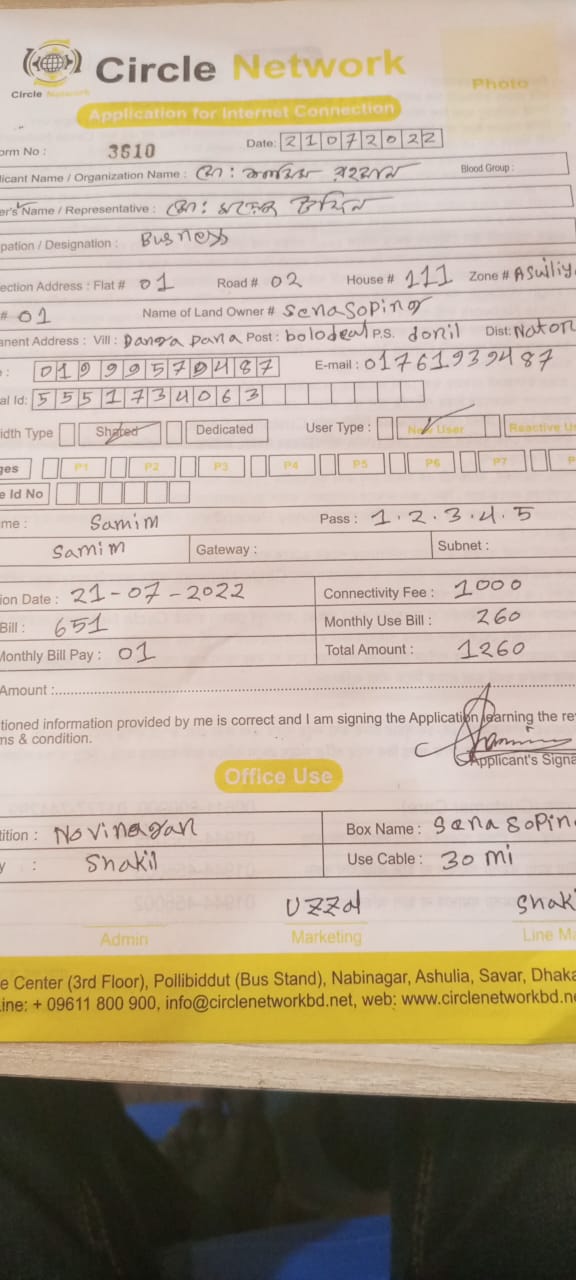 Circle Network
Circle Network
Photo
Application for Internet Connection
orm No : 3610 Date: 21072022
licant Name / Organization Name : মো: Blood Group :
er's Name / Representative : মো: উদ্দিন
pation / Designation : Busness
ection Address : Flat # 01 Road # 02 House # 111 Zone # Asuliy
# 01 Name of Land Owner # Senasoping
anent Address : Vill : Dangapana Post : bolodeal P.S. donil Dist: Naton
: 01999570487 E-mail : 01761939487
al Id: 5551734063
idth Type Shared Dedicated User Type : New User Reactive U
ges P1 P2 P3 P4 P5 P6 P7 P
e Id No
me : Samim Pass : 1.2.3.4.5
Samim Gateway : Subnet :
ion Date : 21-07-2022 Connectivity Fee : 1000
Bill : 651 Monthly Use Bill : 260
Monthly Bill Pay : 01 Total Amount : 1260
Amount :
tioned information provided by me is correct and I am signing the Application learning the re
ns & condition.
Applicant's Signa
Office Use
tition : Novinagar Box Name : Senasopin
y : Shakil Use Cable : 30 mi
Uzzal Shaki
Admin Marketing Line Ma
e Center (3rd Floor), Pollibiddut (Bus Stand), Nabinagar, Ashulia, Savar, Dhaka
ine: + 09611 800 900, info@circlenetworkbd.net, web: www.circlenetworkbd.ne